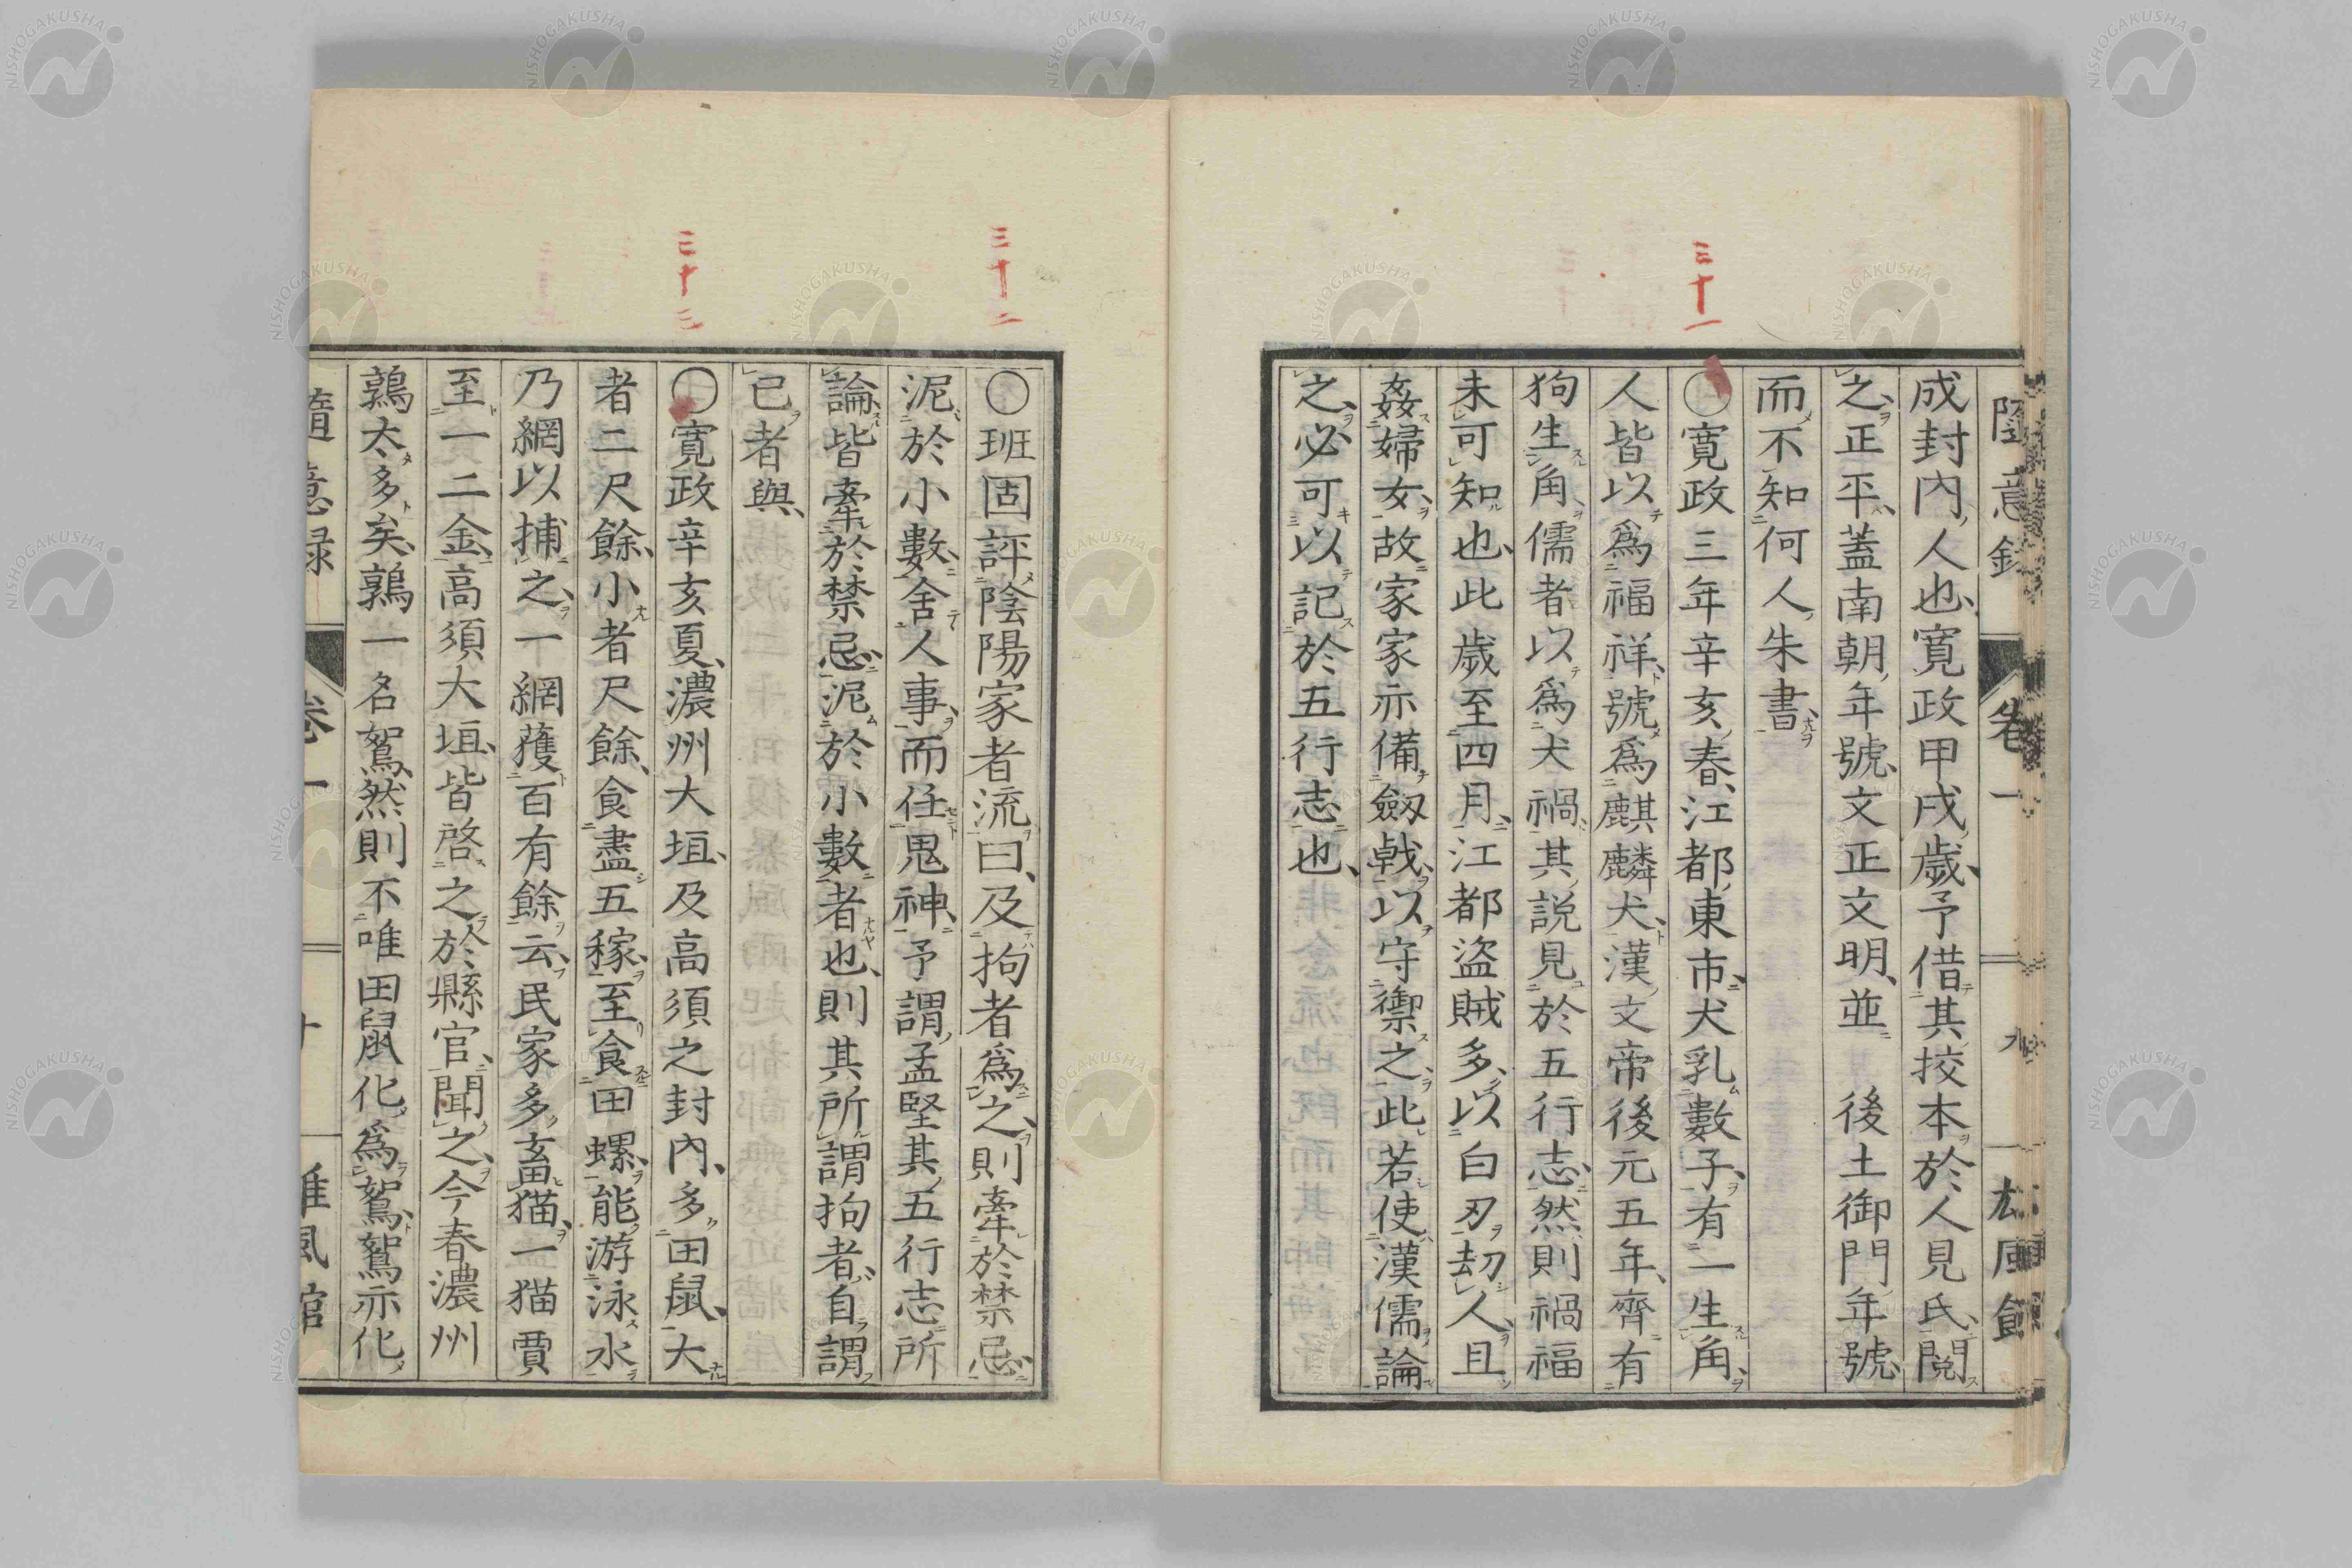 三十一
隨意錄 卷一 九 雄風館
成封內人也、寬政甲戌歲、予借其挍本於人見氏、閱
之、正平、蓋南朝年號、文正文明、並 後土御門年號、
而不知何人朱書、
〇寬政三年辛亥春、江都東市、犬乳數子、有一生角、
人皆以爲福祥、號爲麒麟犬、漢文帝後元五年、齊有
狗生角、儒者以爲犬禍、其說見於五行志、然則禍福
未可知也、此歲至四月、江都盜賊多、以白刃劫人、且
姦婦女、故家家亦備劔戟、以守禦之、此若使漢儒論
之、必可以記於五行志也、
三十二
三十三
〇班固評陰陽家者流曰、及拘者爲之、則牽於禁忌、
泥於小數、舍人事、而任鬼神、予謂孟堅其五行志所
論、皆牽於禁忌、泥於小數者也、則其所謂拘者、自謂
已者與、
〇寬政辛亥夏、濃州大垣、及高須之封內、多田鼠、大
者二尺餘、小者尺餘、食盡五稼、至食田螺、能游泳水
乃網以捕之、一網獲百有餘云、民家多畜猫、一猫賈
至一二金、高須大垣、皆啓之於縣官、聞之、今春濃州
鶉太多矣、鶉一名鴽、然則不唯田鼠化爲鴽、鴽亦化
隨意錄 卷一 十 雄風館
NISHOGAKUSHA